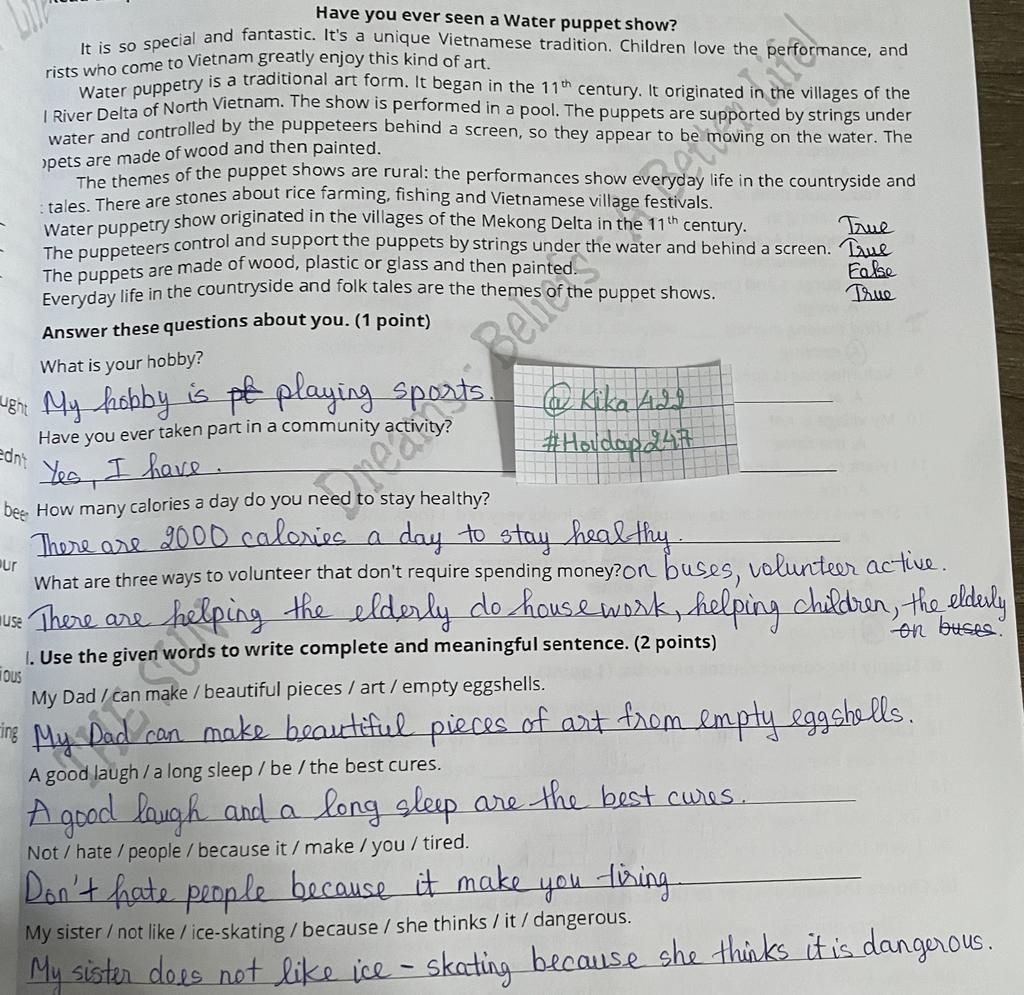 Have you ever seen a Water puppet show?
It is so special and fantastic. It's a unique Vietnamese tradition. Children love the performance, and
rists who come to Vietnam greatly enjoy this kind of art.
Water puppetry is a traditional art form. It began in the 11th century. It originated in the villages of the
l River Delta of North Vietnam. The show is performed in a pool. The puppets are supported by strings under
water and controlled by the puppeteers behind a screen, so they appear to be moving on the water. The
pets are made of wood and then painted.
The themes of the puppet shows are rural: the performances show everyday life in the countryside and
tales. There are stones about rice farming, fishing and Vietnamese village festivals.
Water puppetry show originated in the villages of the Mekong Delta in the 11th century. True
The puppeteers control and support the puppets by strings under the water and behind a screen. True
The puppets are made of wood, plastic or glass and then painted. False
Everyday life in the countryside and folk tales are the themes of the puppet shows. True
Answer these questions about you. (1 point)
What is your hobby?
ught My hobby is playing sports.
@Kika422
#Hoidap247
Have you ever taken part in a community activity?
edn't Yes, I have.
bee How many calories a day do you need to stay healthy?
There are 2000 calories a day to stay healthy.
our What are three ways to volunteer that don't require spending money? on buses, volunteer active.
use There are helping the elderly do housework, helping children, the elderly
on buses.
I. Use the given words to write complete and meaningful sentence. (2 points)
ious
My Dad / can make / beautiful pieces / art / empty eggshells.
ing My Dad can make beautiful pieces of art from empty eggshells.
A good laugh / a long sleep / be / the best cures.
A good laugh and a long sleep are the best cures.
Not / hate / people / because it / make / you / tired.
Don't hate people because it make you tiring
My sister / not like / ice-skating / because / she thinks / it / dangerous.
My sister does not like ice - skating because she thinks it is dangerous.
THE SUN Dreams - Beliefs - A Better Life!